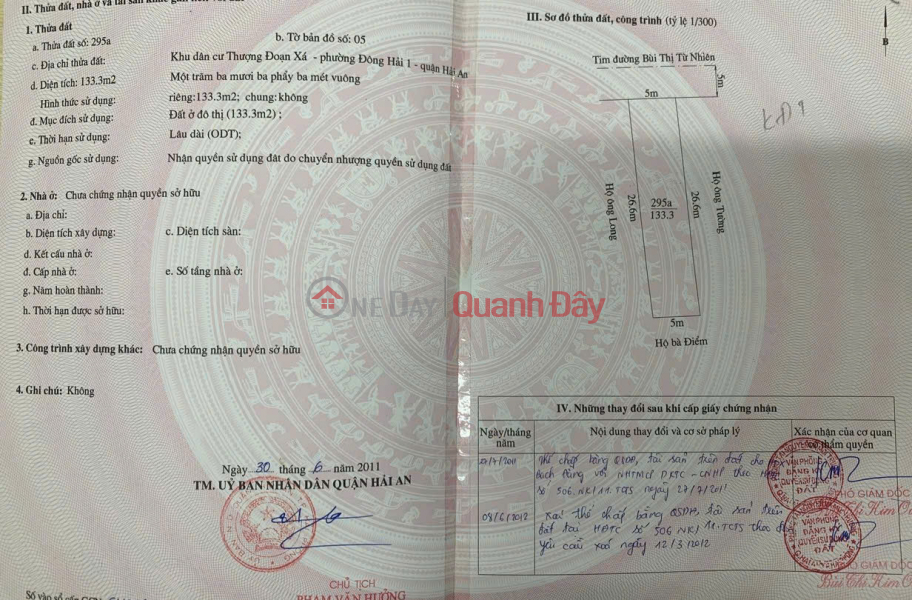 II. Thửa đất, nhà ở và tài sản khác gắn liền với đất
1. Thửa đất
a. Thửa đất số: 295a
b. Tờ bản đồ số: 05
c. Địa chỉ thửa đất: Khu dân cư Thượng Đoạn Xá - phường Đông Hải 1 - quận Hải An
d. Diện tích: 133.3m2 Một trăm ba mươi ba phẩy ba mét vuông
Hình thức sử dụng: riêng:133.3m2; chung:không
đ. Mục đích sử dụng: Đất ở đô thị (133.3m2) ;
e. Thời hạn sử dụng: Lâu dài (ODT);
g. Nguồn gốc sử dụng: Nhận quyền sử dụng đât do chuyển nhượng quyền sử dụng đất
2. Nhà ở: Chưa chứng nhận quyền sở hữu
a. Địa chỉ:
b. Diện tích xây dựng: c. Diện tích sàn:
d. Kết cấu nhà ở:
đ. Cấp nhà ở: e. Số tầng nhà ở:
g. Năm hoàn thành:
h. Thời hạn được sở hữu:
3. Công trình xây dựng khác: Chưa chứng nhận quyền sở hữu
4. Ghi chú: Không
Ngày 30 tháng 6 năm 2011
TM. UỶ BAN NHÂN DÂN QUẬN HẢI AN
CHỦ TỊCH
PHẠM VĂN HƯỞNG
III. Sơ đồ thửa đất, công trình (tỷ lệ 1/300)
B
Tim đường Bùi Thị Từ Nhiên
5m
5m
Hộ ông Long
26.6m
295a
133.3
26.6m
Hộ ông Tường
5m
Hộ bà Điểm
ONEDAY Quanh Đây
IV. Những thay đổi sau khi cấp giấy chứng nhận
Ngày/tháng năm
Nội dung thay đổi và cơ sở pháp lý
Xác nhận của cơ quan có thẩm quyền
Thế chấp bằng QSDĐ, tài sản trên đất
số 506.NK/11.TCTS ngày 27/7/2011
VĂN PHÒNG
ĐĂNG KÝ
QUYỀN SỬ DỤNG
ĐẤT
PHÓ GIÁM ĐỐC
08/6/2012 Xoá thế chấp bằng QSDĐ, tài sản trên
đất tại HĐTC số 506 NK/11.TCTS theo
yêu cầu xoá ngày 12/3/2012
VĂN PHÒNG
ĐĂNG KÝ
QUYỀN SỬ DỤNG
ĐẤT
PHÓ GIÁM ĐỐC
Bùi Thị Kim